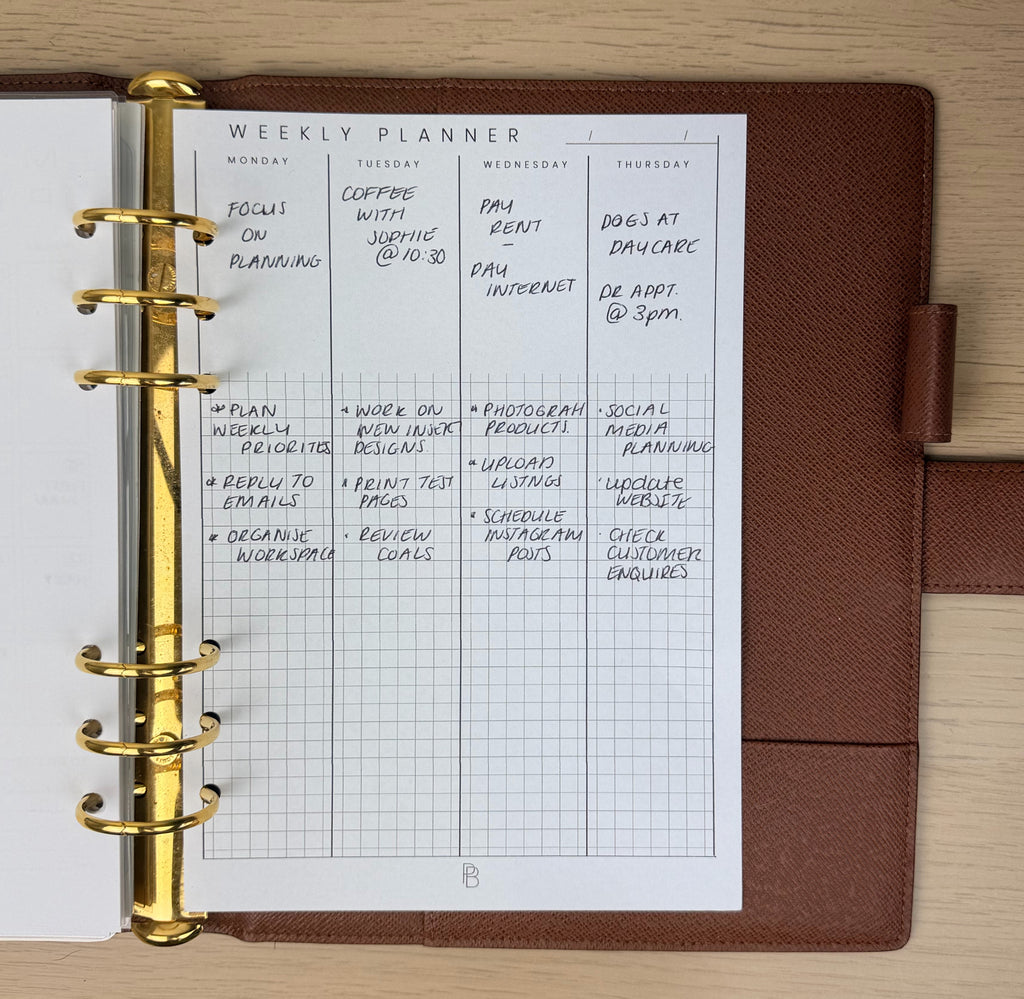 WEEKLY PLANNER
/ /
MONDAY
FOCUS
ON
PLANNING
* PLAN
WEEKLY
PRIORITES
* REPLY TO
EMAILS
* ORGANISE
WORKSPACE
TUESDAY
COFFEE
WITH
SOPHIE
@ 10:30
* WORK ON
NEW INSERT
DESIGNS.
* PRINT TEST
PAGES
· REVIEW
GOALS
WEDNESDAY
PAY
RENT
–
PAY
INTERNET
* PHOTOGRAH
PRODUCTS.
* UPLOAD
LISTNGS
* SCHEDULE
INSTAGRAM
POSTS
THURSDAY
DOGS AT
DAYCARE
DR APPT.
@ 3pm.
· SOCIAL
MEDIA
PLANNING
· update
WEBSITE
· CHECK
CUSTOMER
ENQUIRES
PB